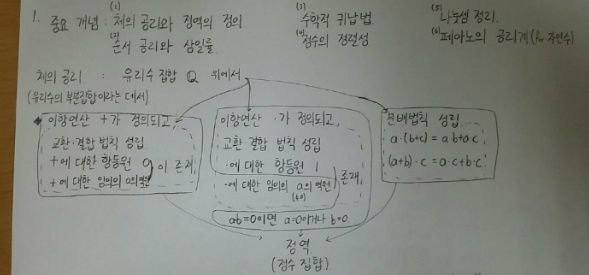 1. 중요 개념 : (1) 체의 공리와 정역의 정의 (3) 수학적 귀납법 (5) 나눗셈 정리.
(2) 순서 공리와 삼일률 (4) 정수의 정렬성 (6) 페아노의 공리계 (for 자연수)
체의 공리 : 유리수 집합 Q 위에서
(유리수의 부분집합이라는 데서)
이항연산 +가 정의되고,
교환·결합 법칙 성립
+에 대한 항등원 0
+에 대한 임의의 a의 역원
이 존재,
이항연산 ·가 정의되고,
교환 결합 법칙 성립
·에 대한 항등원 1
·에 대한 임의의 a의 역원
(≠0)
존재,
ab=0이면 a=0이거나 b=0.
분배법칙 성립
a·(b+c) = ab+ac
(a+b)·c = a·c+b·c
정역
(정수 집합)